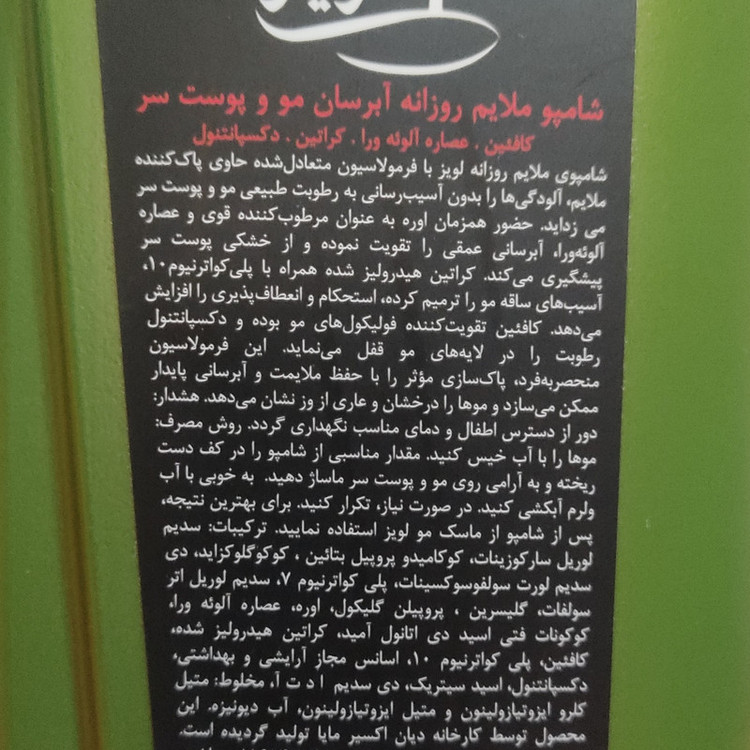 شامپو ملایم روزانه آبرسان مو و پوست سر
کافئین . عصاره آلوئه ورا . کراتین . دکسپانتنول
شامپوی ملایم روزانه لویز با فرمولاسیون متعادل‌شده حاوی پاک‌کننده
ملایم، آلودگی‌ها را بدون آسیب‌رسانی به رطوبت طبیعی مو و پوست سر
می زداید. حضور همزمان اوره به عنوان مرطوب‌کننده قوی و عصاره
آلوئه‌ورا، آبرسانی عمقی را تقویت نموده و از خشکی پوست سر
پیشگیری می‌کند. کراتین هیدرولیز شده همراه با پلی‌کواترنیوم۱۰،
آسیب‌های ساقه مو را ترمیم کرده، استحکام و انعطاف‌پذیری را افزایش
می‌دهد. کافئین تقویت‌کننده فولیکول‌های مو بوده و دکسپانتنول
رطوبت را در لایه‌های مو قفل می‌نماید. این فرمولاسیون
منحصربه‌فرد، پاک‌سازی مؤثر را با حفظ ملایمت و آبرسانی پایدار
ممکن می‌سازد و موها را درخشان و عاری از وز نشان می‌دهد. هشدار:
دور از دسترس اطفال و دمای مناسب نگهداری گردد. روش مصرف:
موها را با آب خیس کنید. مقدار مناسبی از شامپو را در کف دست
ریخته و به آرامی روی مو و پوست سر ماساژ دهید. به خوبی با آب
ولرم آبکشی کنید. در صورت نیاز، تکرار کنید. برای بهترین نتیجه،
پس از شامپو از ماسک مو لویز استفاده نمایید. ترکیبات: سدیم
لوریل سارکوزینات، کوکامیدو پروپیل بتائین ، کوکوگلوکزاید، دی
سدیم لورت سولفوسوکسینات، پلی کواترنیوم ۷، سدیم لوریل اتر
سولفات، گلیسرین ، پروپیلن گلیکول، اوره، عصاره آلوئه ورا،
کوکونات فتی اسید دی اتانول آمید، کراتین هیدرولیز شده،
کافئین، پلی کواترنیوم ۱۰، اسانس مجاز آرایشی و بهداشتی،
دکسپانتنول، اسید سیتریک، دی سدیم ا د ت آ، مخلوط: متیل
کلرو ایزوتیازولینون و متیل ایزوتیازولینون، آب دیونیزه. این
محصول توسط کارخانه دیان اکسیر مایا تولید گردیده است.